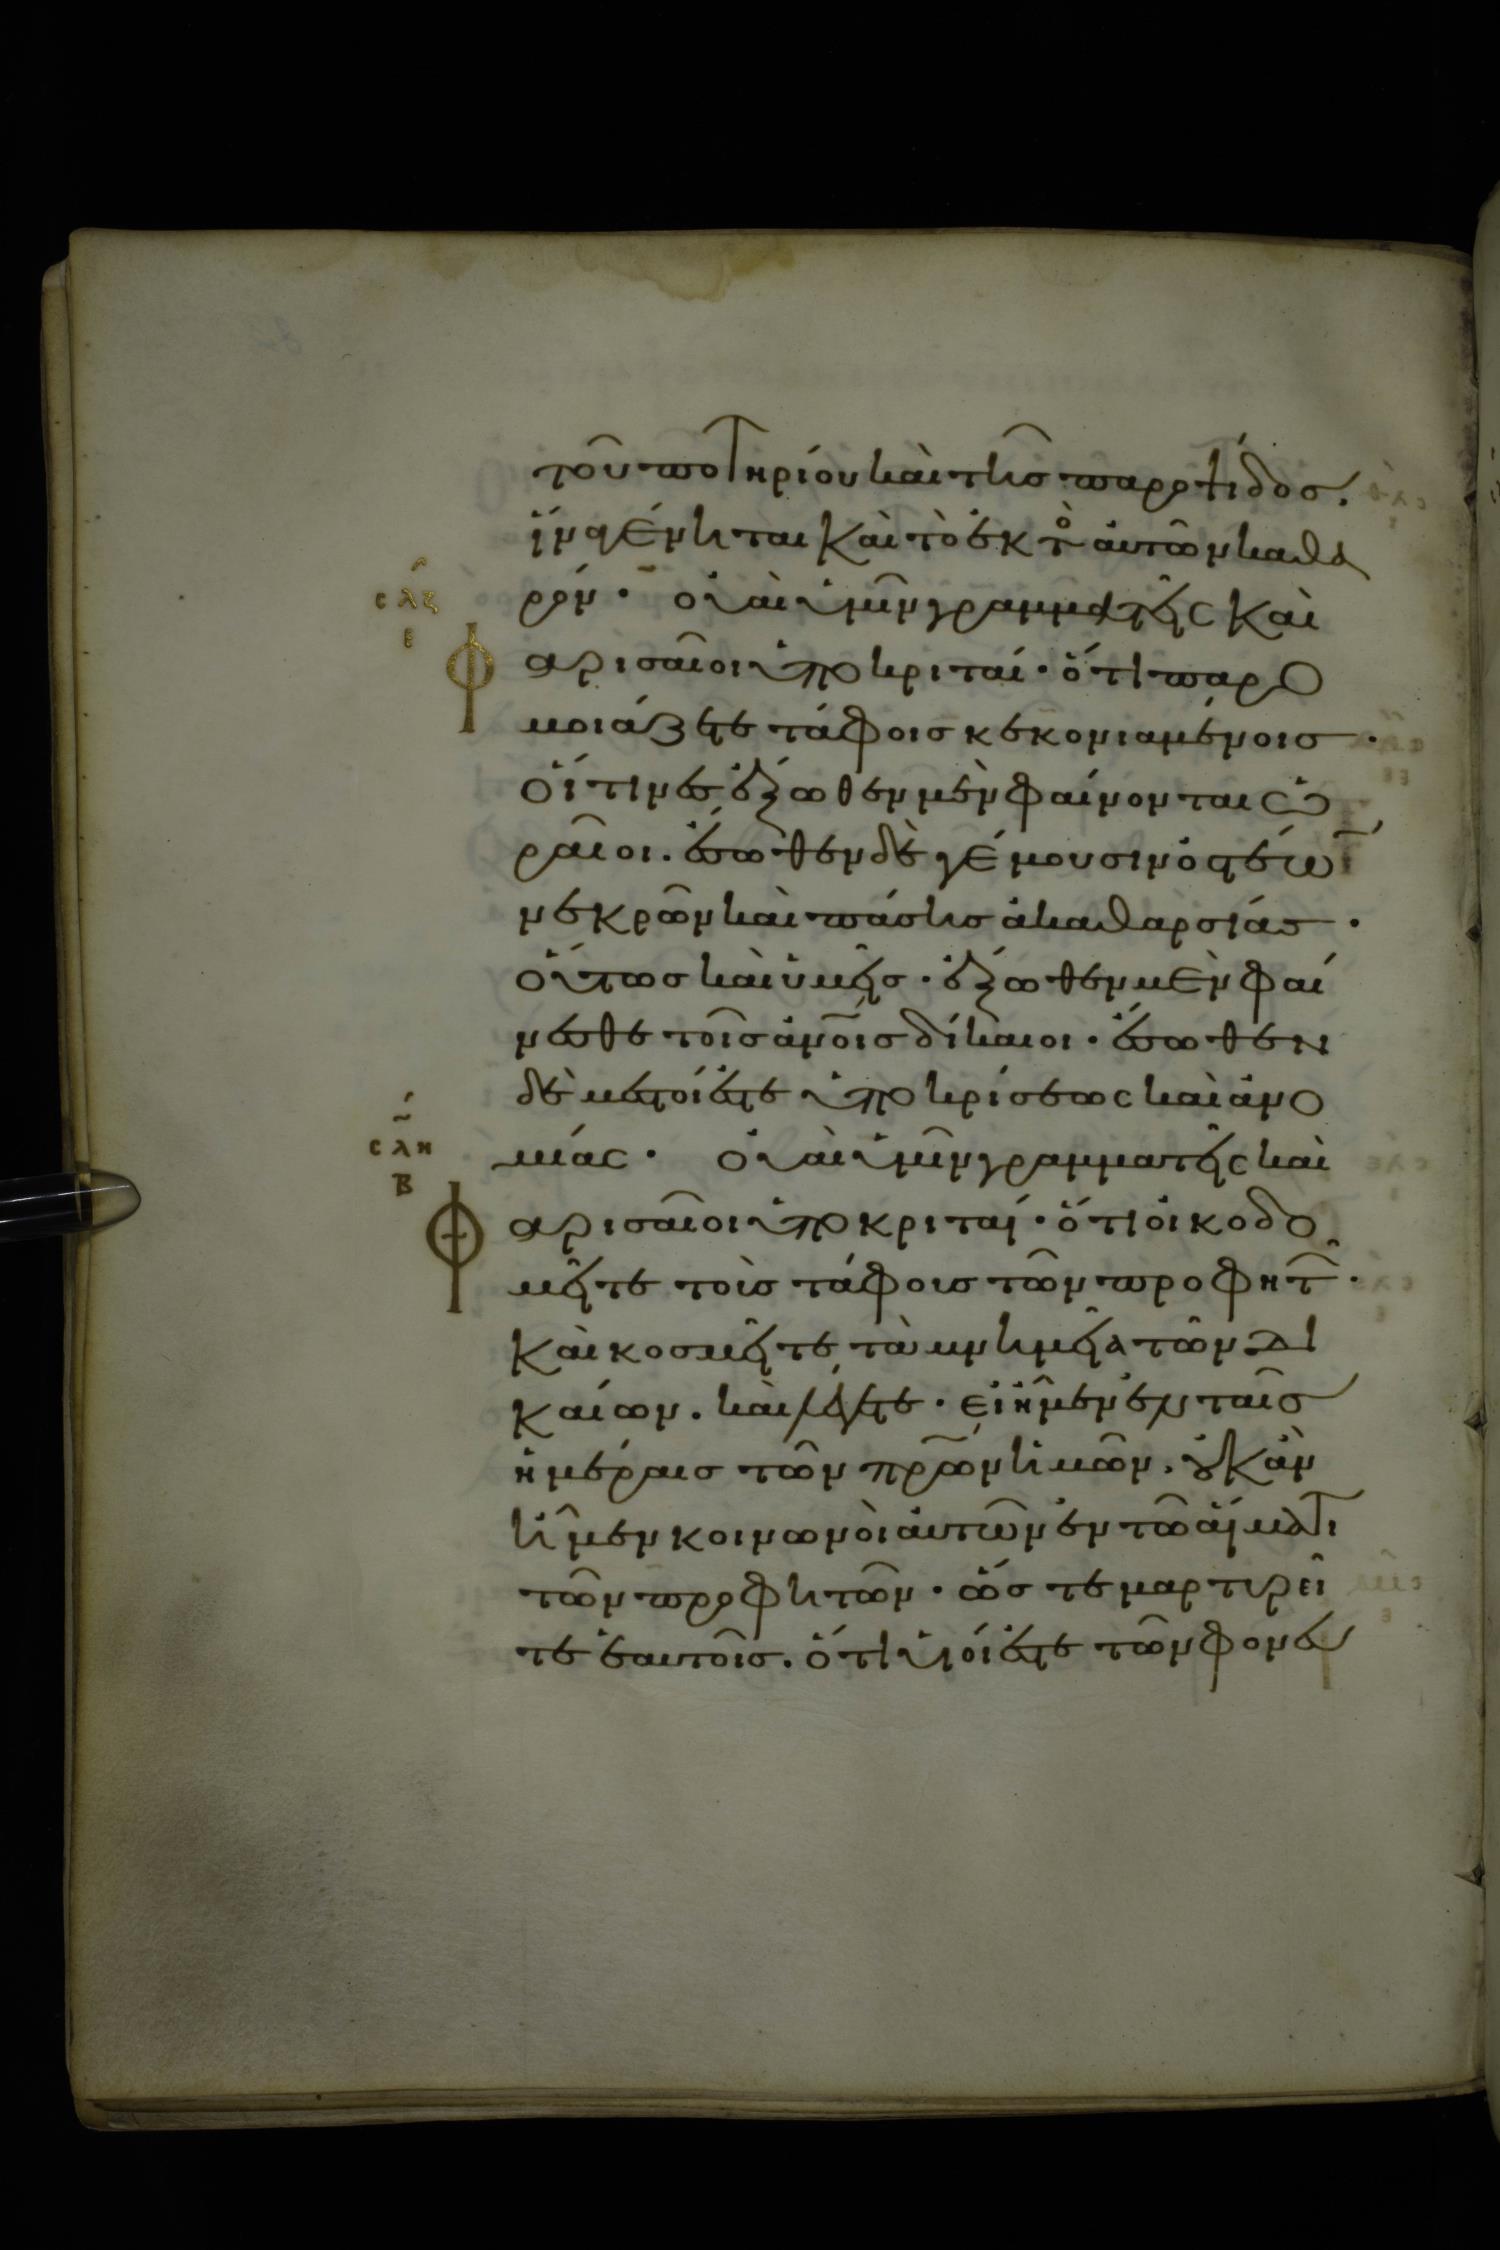 τοῦ ποτηρίου καὶ τῆσ παροψίδοσ.
ἵνα γένηται καὶ τὸ ἐκτὸ αὐτῶν καθα
ρόν · οὐαὶ ὑμῖν γραμματεῖς καὶ
σλζ
ε
Φαρισαῖοι ὑποκριταί · ὅτι παρο
μοιάζετε τάφοισ κεκονιαμένοισ ·
οἵτινεσ ἔξωθεν μὲν φαίνονται ὡ
ραῖοι . ἔσωθεν δὲ γέμουσιν ὀστέω
νεκρῶν καὶ πάσησ ἀκαθαρσίασ ·
οὕτωσ καὶ ὑμεῖσ · ἔξωθεν μὲν φαί
νεσθε τοῖσ ἀνοῖσ δίκαιοι · ἔσωθεν
δὲ μεστοί ἐστε ὑποκρίσεως καὶ ἀνο
μίας · οὐαὶ ὑμῖν γραμματεῖς καὶ
σλη
β
Φαρισαῖοι ὑποκριταί · ὅτι οἰκοδο
μεῖτε τοὶσ τάφοισ τῶν προφητ ·
καὶ κοσμεῖτε τὰ μνημεῖα τῶν δι
καίων . καὶ λέγετε · εἰ ἦμεν ἐν ταῖσ
ἡμέραισ τῶν πρῶν ἡμῶν . οὐκ ἂν
ἦμεν κοινωνοὶ αὐτῶν ἐν τῶ αἵματι
τῶν προφητῶν · ὥστε μαρτυρεῖ
τε ἑαυτοῖσ . ὅτι υἱοί ἐστε τῶν φονευ